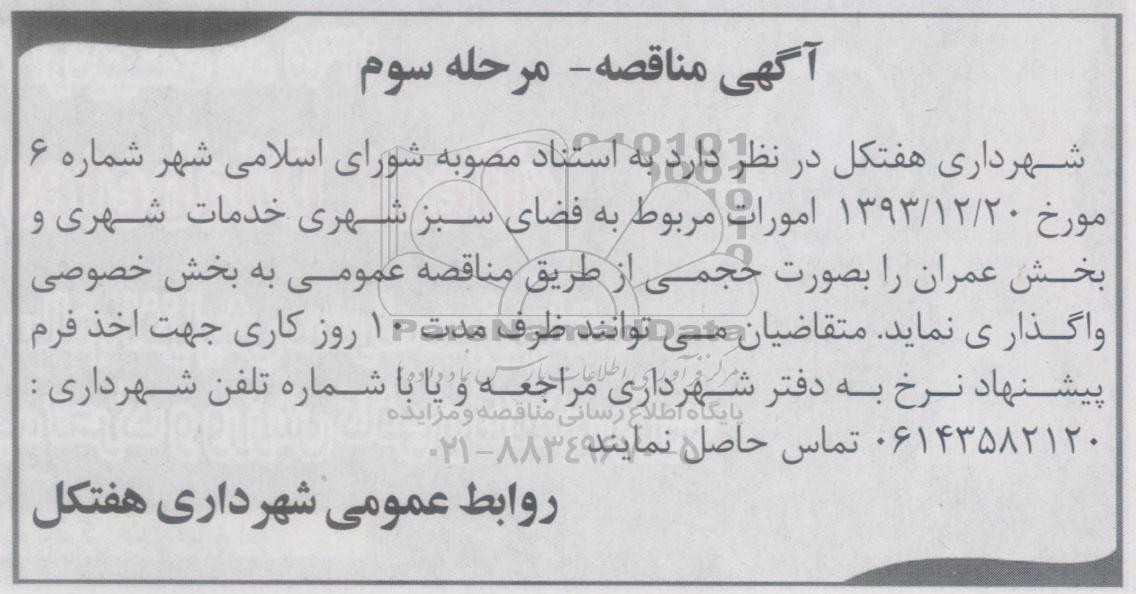 آگهی مناقصه- مرحله سوم
شهرداری هفتکل در نظر دارد به استناد مصوبه شورای اسلامی شهر شماره ۶
مورخ ۱۳۹۳/۱۲/۲۰ امورات مربوط به فضای سبز شهری خدمات شهری و
بخش عمران را بصورت حجمی از طریق مناقصه عمومی به بخش خصوصی
واگذار ی نماید. متقاضیان می توانند ظرف مدت ۱۰ روز کاری جهت اخذ فرم
ParsNamadData
مرکز فرآوری اطلاعات پارس نماد داده
پیشنهاد نرخ به دفتر شهرداری مراجعه و یا با شماره تلفن شهرداری :
پایگاه اطلاع رسانی مناقصه و مزایده
۰۶۱۴۳۵۸۲۱۲۰ تماس حاصل نمایند
۰۲۱-۸۸۳۴۹۶۷۰-۵
روابط عمومی شهرداری هفتکل